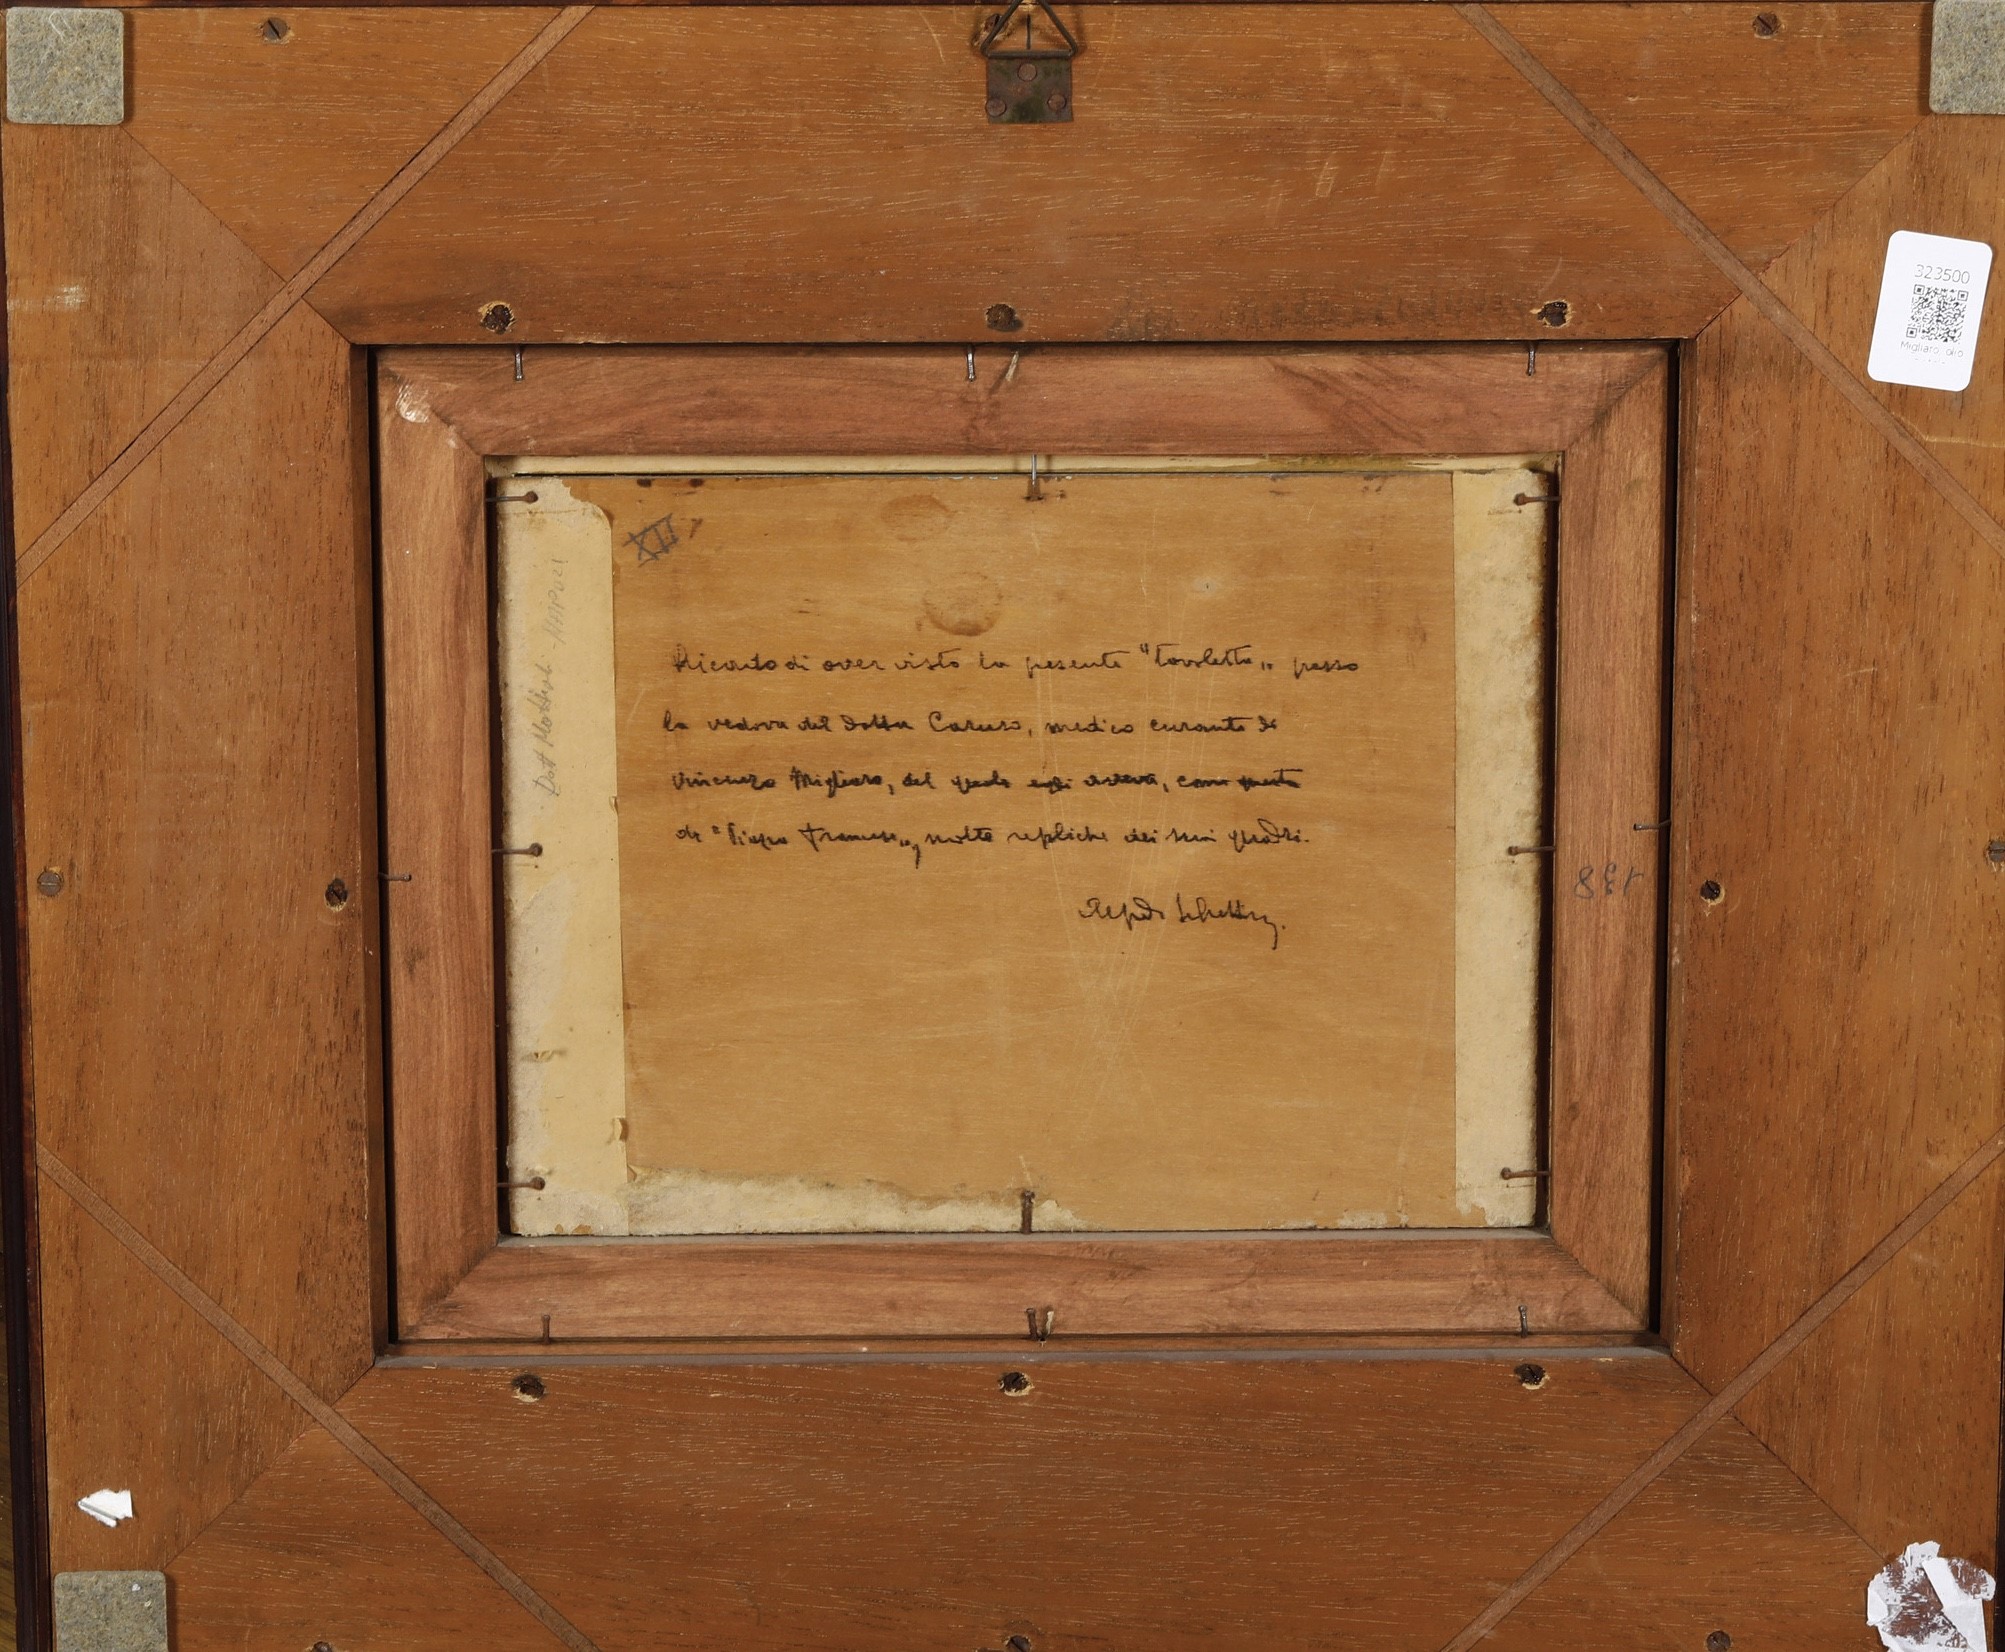 323500
Migliaro, olio
XII
Dott
Ricordo di aver visto la presente "tavoletta„ presso
la vedova del dottor Caruso, medico curante di
Vincenzo Migliaro, del quale egli aveva, come questa
di "Piazza Francese„, molte repliche dei suoi quadri.
Alfredo Schettini.
138